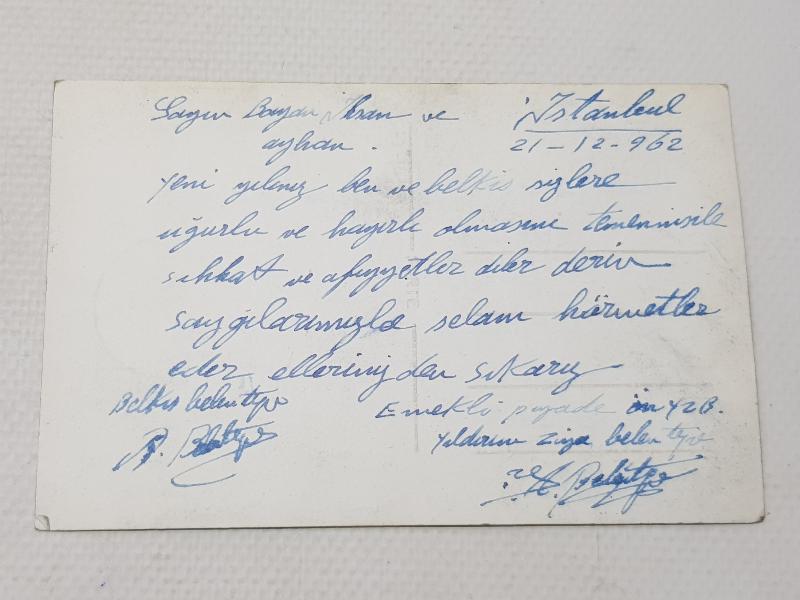 Sayın Bayan İhsan ve
ayhan.
İstanbul
21-12-962
yeni yılınız ben ve belkis sizlere
uğurlu ve hayırlı olmasını temennisile
sıhhat ve afiyyetler diler derin
saygılarımızla selam hörmetler
eder ellerinizden sıkarız
Belkis belentepe
Emekli piyade ön YZB.
Yıldırım Ziya belentepe